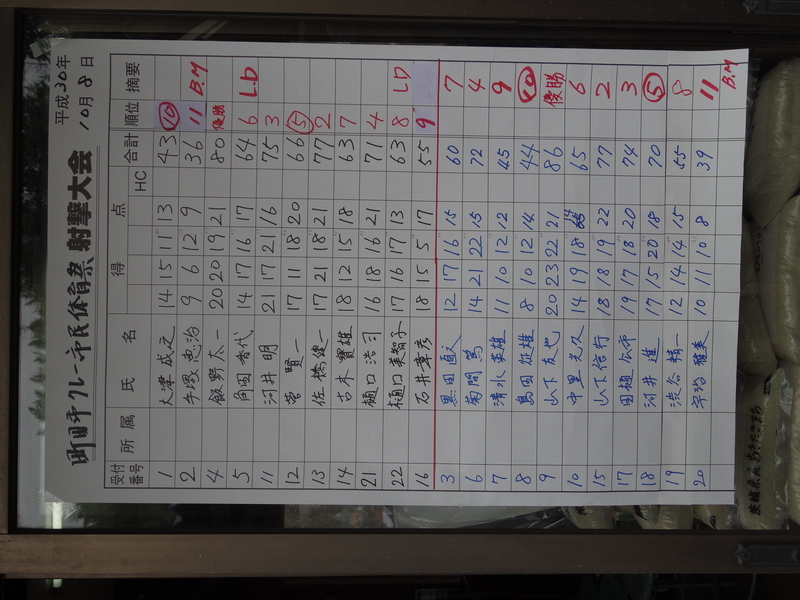 町田市クレー市民体育祭 射撃大会
平成30年
10月8日
受付番号 所属 氏名 得点 HC 合計 順位 摘要
1 大津成之 14 15 11 13 43 ⑩
2 手塚恵治 9 6 12 9 36 11 B.M
4 飯野太一 20 20 19 21 80 優勝
5 角田香代 14 17 16 17 64 6 LD
11 河井明 21 17 21 16 75 3
12 菅賢一 17 11 18 20 66 ⑤
13 佐橋健一 17 21 18 21 77 2
14 古木實雄 18 12 15 18 63 7
21 樋口浩司 16 18 16 21 71 4
22 樋口美智子 17 16 17 13 63 8 LD
16 石井幸彦 18 15 5 17 55 9
3 黒田直人 12 17 16 15 60 7
6 菊間篤 14 21 22 15 72 4
7 清水英雄 11 10 12 12 45 9
8 島田征雄 8 10 12 14 44 ⑩
9 山下友也 20 23 22 21 86 優勝
10 中里光久 14 19 18 14 65 6
15 山下信行 18 18 19 22 77 2
17 田樋 19 17 18 20 74 3
18 河井進 17 15 20 18 70 ⑤
19 渋谷精一 12 14 14 15 55 8
20 雅美 10 11 10 8 39 11 B.M
茨城県産あきたこまち